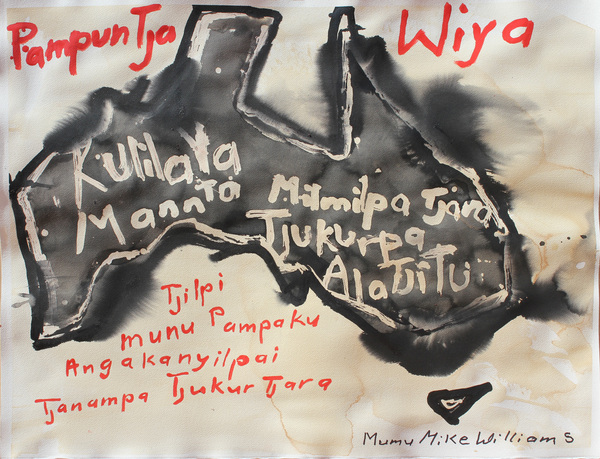 PampunTja Wiya
Kulilaya
MannTa
Milmilpa Tjara
Tjukurpa
AlaTjiTu
Tjilpi
munu Pampaku
Angakanyilpai
Tjanampa TjukurTjara
Mumu Mike Williams